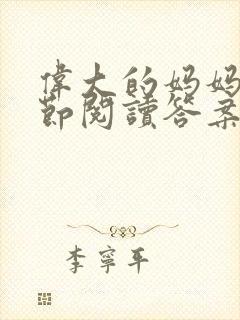 偉大的妈妈
節閱讀答案
李寧平